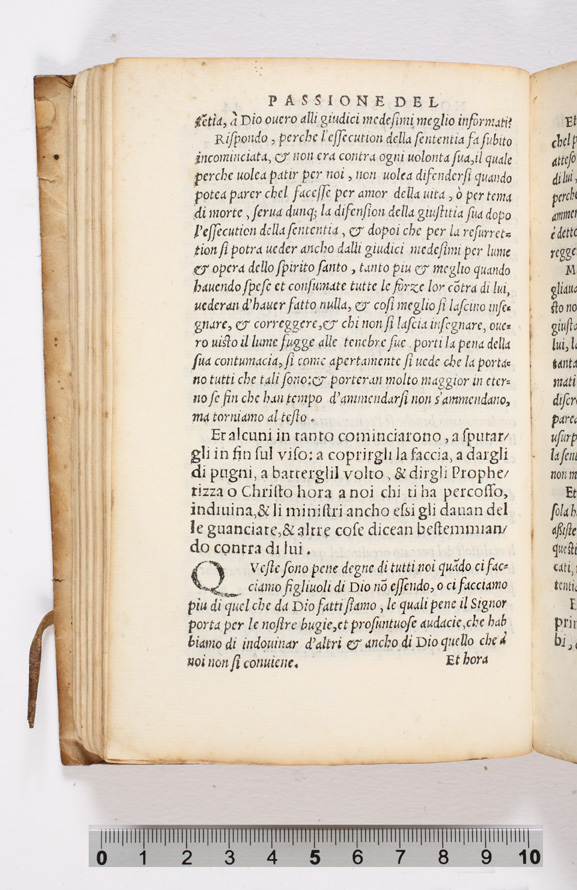 PASSIONE DEL
tētia, à Dio ouero alli giudici medesimi meglio informati?
Rispondo, perche l'essecution della sententia fa subito
incominciata, & non era contra ogni uolonta sua, il quale
perche uolea patir per noi, non uolea difendersi quando
potea parer chel facesse per amor della uita, ò per tema
di morte, serua dunq; la difension della giustitia sua dopo
l'essecution della sententia, & dopoi che per la resurret=
tion si potra ueder ancho dalli giudici medesimi per lume
& opera dello spirito santo, tanto piu & meglio quando
hauendo spese et consumate tutte le forze lor cōtra di lui,
uederan d'hauer fatto nulla, & cosi meglio si lascino inse=
gnare, & correggere, & chi non si lascia insegnare, oue=
ro uisto il lume fugge alle tenebre sue porti la pena della
sua contumacia, si come apertamente si uede che la porta=
no tutti che tali sono: & porteran molto maggior in eter=
no se fin che han tempo d'ammendarsi non s'ammendano,
ma torniamo al testo.
Et alcuni in tanto cominciarono, a sputar/
gli in fin sul viso: a coprirgli la faccia, a dargli
di pugni, a batterglil volto, & dirgli Prophe/
tizza o Christo hora a noi chi ti ha percosso,
indiuina, & li ministri ancho essi gli dauan del
le guanciate, & altre cose dicean bestemmian/
do contra di lui.
QVeste sono pene degne di tutti noi quādo ci fac=
ciamo figliuoli di Dio nō essendo, o ci facciamo
piu di quel che da Dio fatti siamo, le quali pene il Signor
porta per le nostre bugie, et prosuntuose audacie, che hab
biamo di indouinar d'altri & ancho di Dio quello che à
noi non si conuiene.
Et hora
0 1 2 3 4 5 6 7 8 9 10